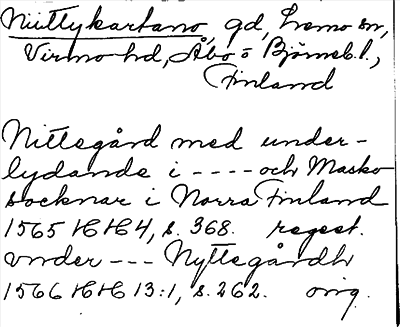 Niittykartano, gd, Lemo sn,
Virmo hd, Åbo o Björneb. l.,
Finland
Nittegård med under-
lydande i ---- och Masko
socknar i Norra Finland
1565 HH 4, s. 368. regest.
vnder --- Nyttegårdh
1566 HH 13:1, s. 262. orig.